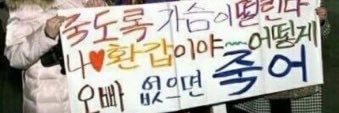 죽도록 가슴이 떨린다
나♥환갑이야~~어떻게
오빠 없으면 죽어